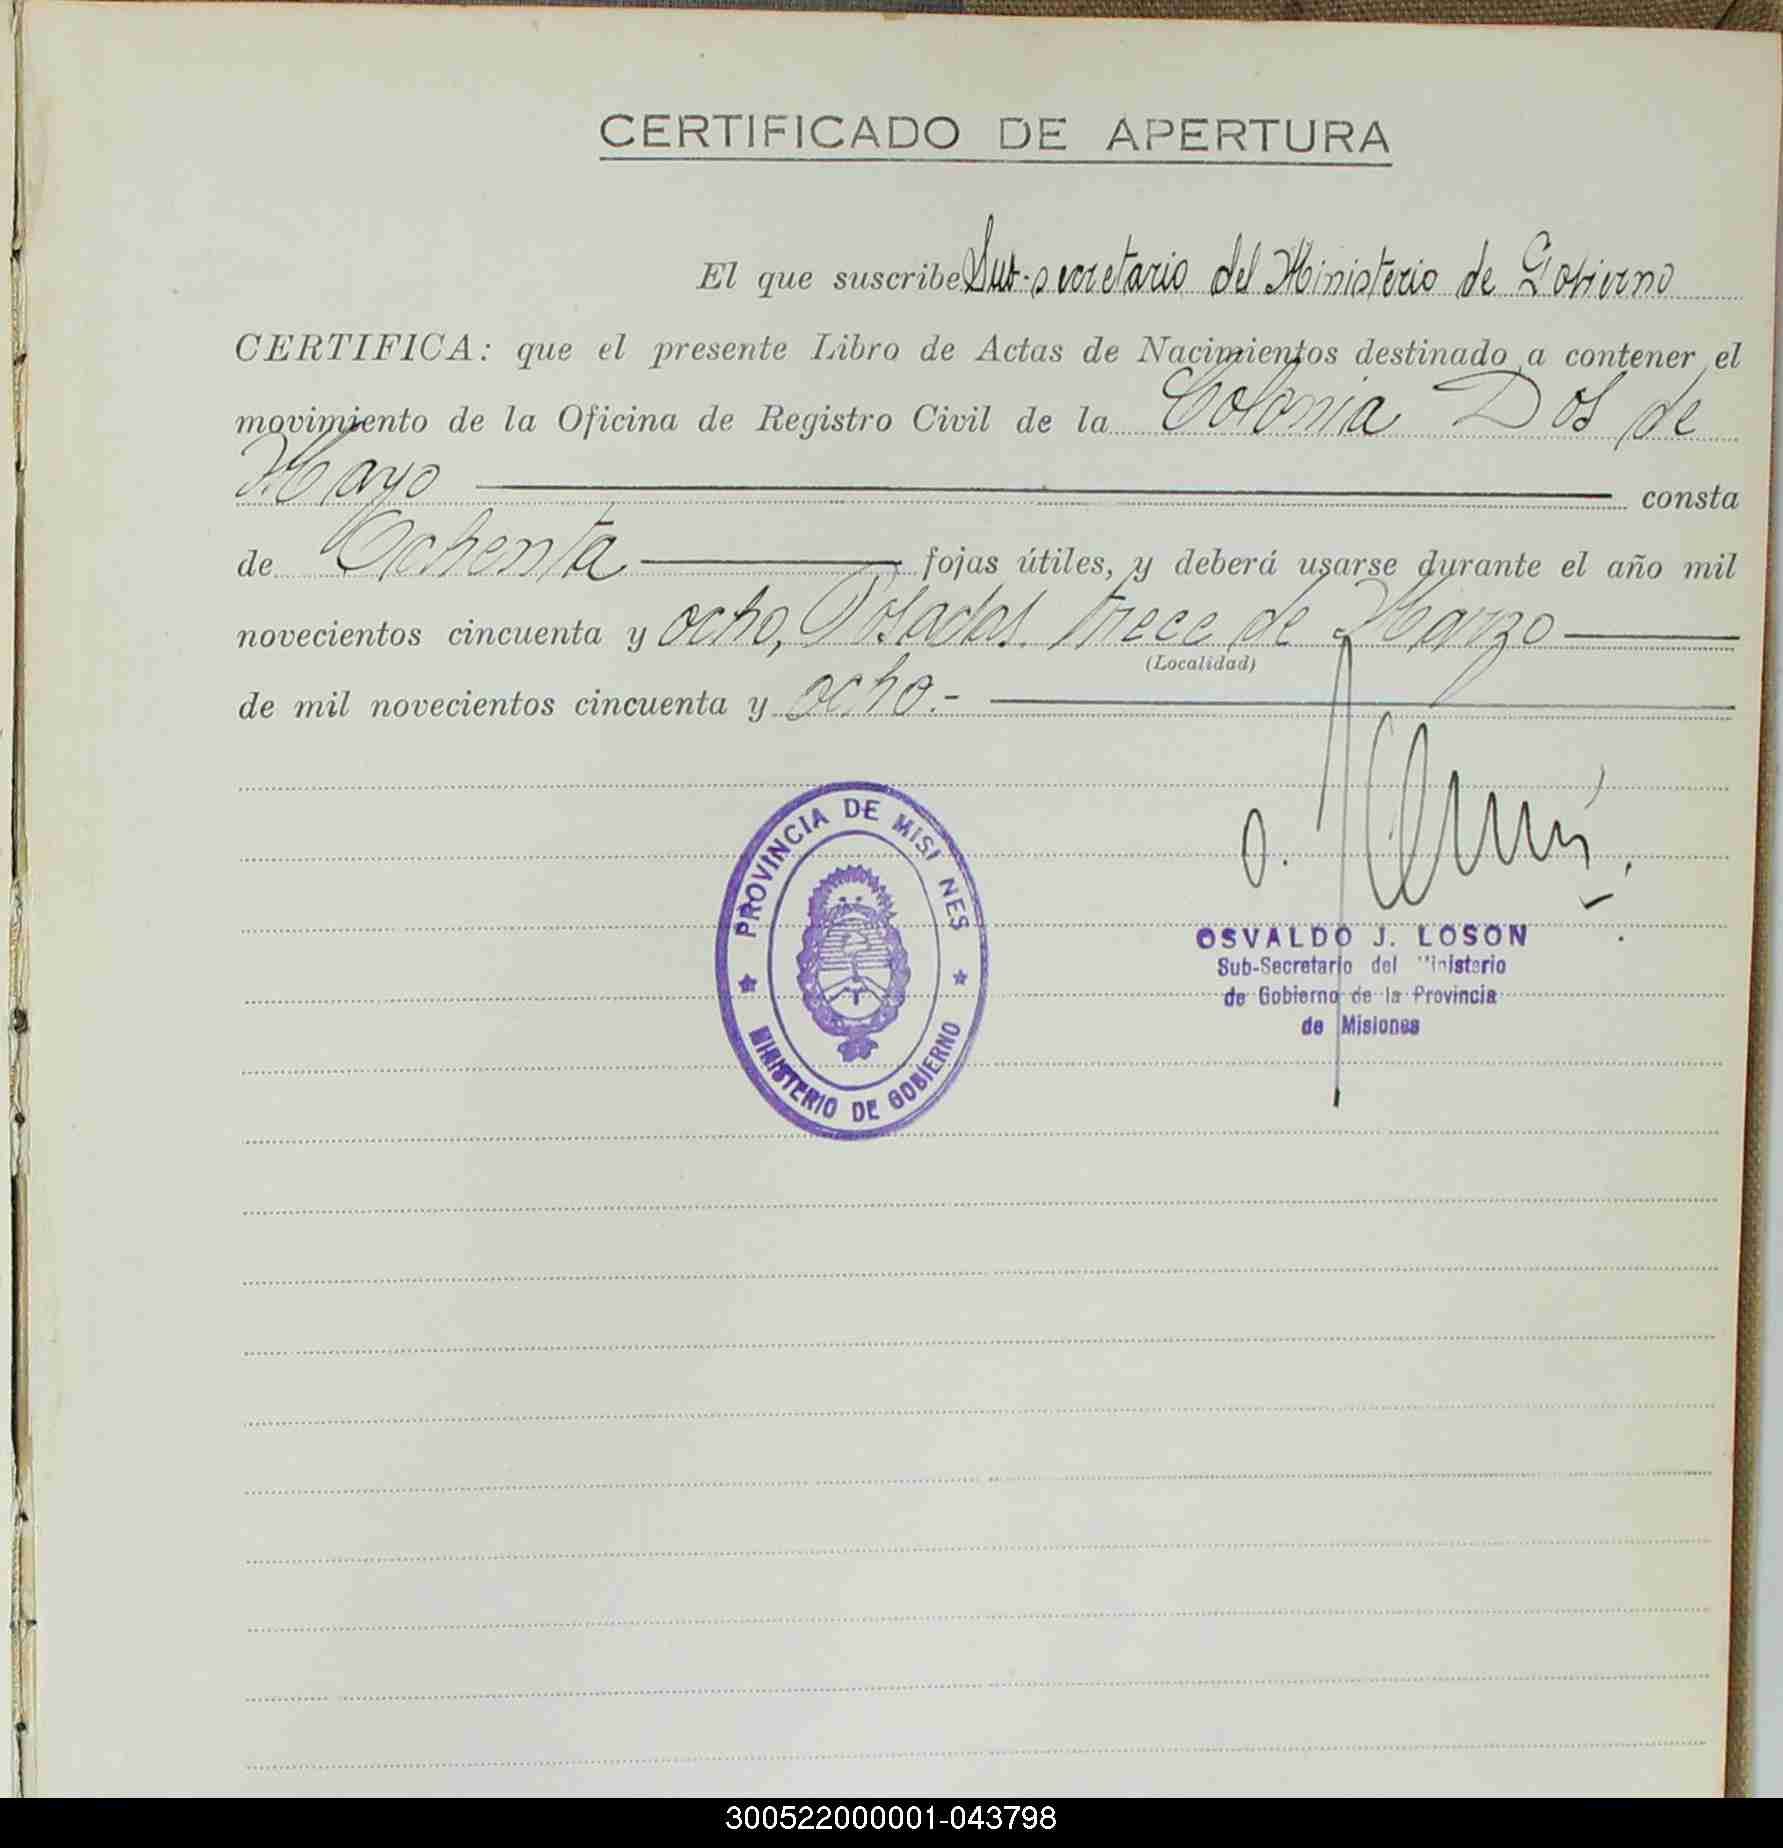 CERTIFICADO DE APERTURA
El que suscribe Sub-secretario del Ministerio de Gobierno
CERTIFICA: que el presente Libro de Actas de Nacimientos destinado a contener el
movimiento de la Oficina de Registro Civil de la Colonia Dos de
Mayo consta
de Ochenta fojas útiles, y deberá usarse durante el año mil
novecientos cincuenta y ocho, Posadas trece de Marzo
(Localidad)
de mil novecientos cincuenta y ocho.-
PROVINCIA DE MISI NES
MINISTERIO DE GOBIERNO
OSVALDO J. LOSON
Sub-Secretario del Ministerio
de Gobierno de la Provincia
de Misiones
300522000001-043798